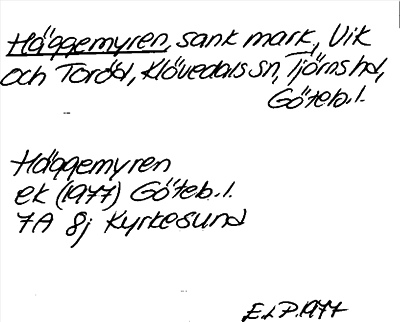 Häggemyren, sank mark, Vik
och Toröd, Klövedals sn, Tjörns hd,
Göteb.l.
Häggemyren
ek (1977) Göteb.l.
7A 8j Kyrkesund
E.L.P. 1977